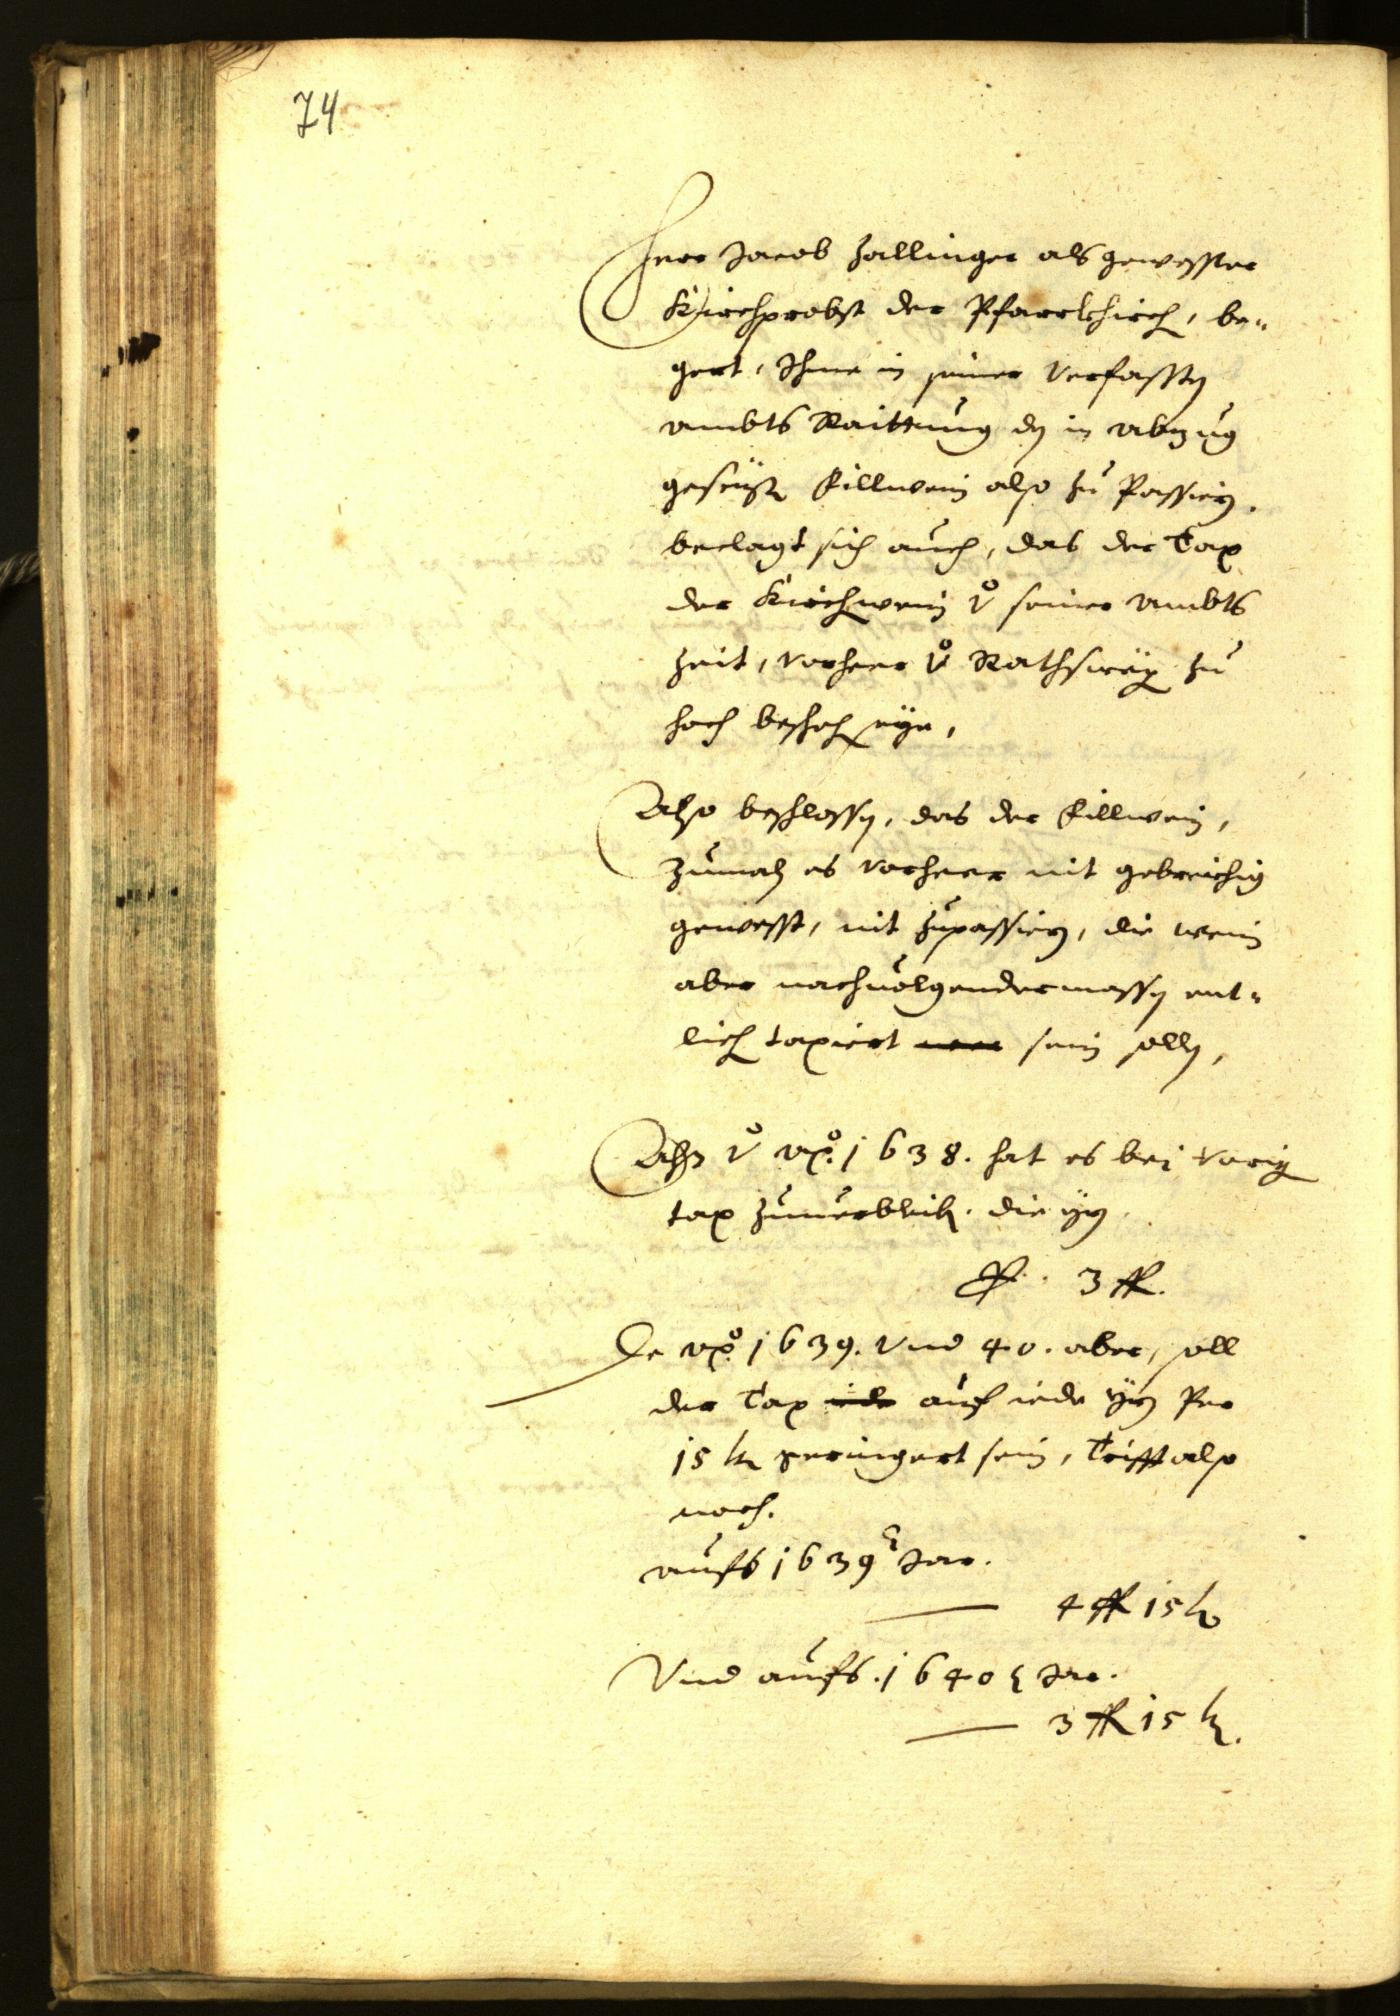 74
Herr Jacob Zallinger als gewesster
Kirchprobst der Pfarrkhirch, be-
gert, Ihme in seiner verfassten
ambts Raittung den in abzug
gesezt fillwein also zu Passiern.
beclagt sich auch, das der Tax
der Kirchwein von seiner ambts
zeit, vorheer von Rathswegen zu
hoch beschehen seye,
Also beschlossen, das der fillwein,
zumaln es vorheer nit gebreichig
gewesst, nit zupassiern, die wein
aber nachvolgendermassen ent-
lich taxiert sein sollen,
Als von anno 1638. hat es bei vorigen
tax zuuerbleiben. die yrn
P 3 fl.
De anno 1639. vnd 40. aber, soll
der Tax auf iede yrn Per
15 kr geringert sein, Trifft also
noch.
aufs 1639 Jar.
4 fl 15 kr
Vnd aufs. 1640 Jar.
3 fl 15 kr.